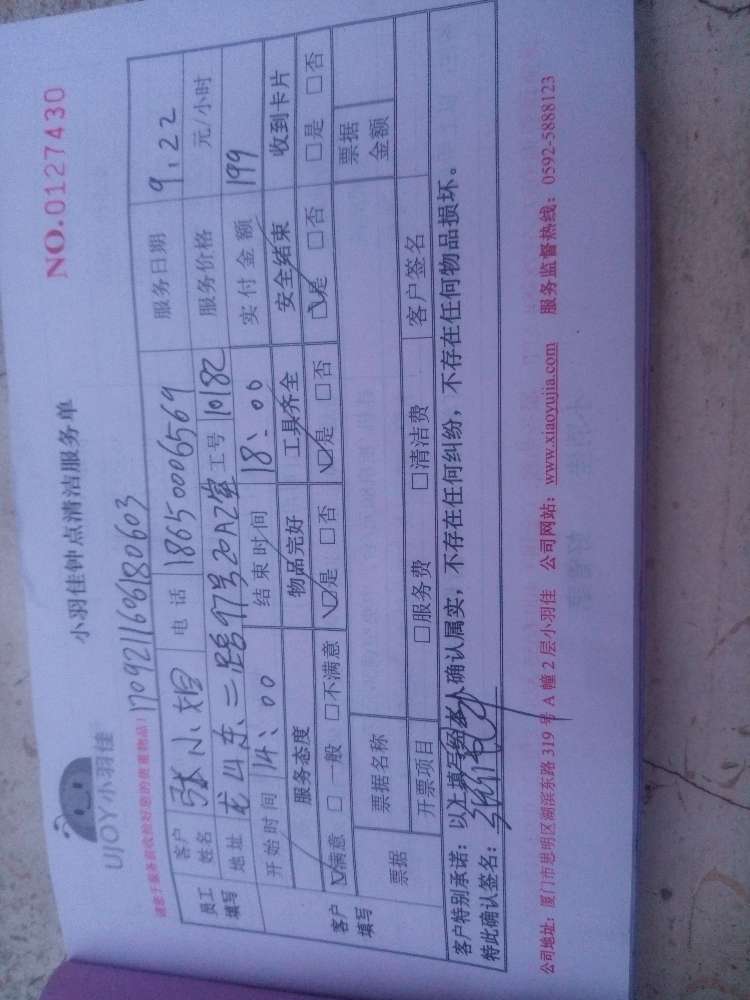 UJOY小羽佳
小羽佳钟点清洁服务单
NO.0127430
170921160618060З
请您于服务前收拾好您的贵重物品!
员工填写 客户姓名 张小姐 电话 18650006569 服务日期 9.22
地址 龙山东二路97号20A2室 工号 10182 服务价格 元/小时
开始时间 14:00 结束时间 18:00 实付金额 199
客户填写 服务态度 物品完好 工具齐全 安全结束 收到卡片
☑满意 □一般 □不满意 ☑是 □否 ☑是 □否 ☑是 □否 □是 □否
票据 票据名称 票据金额
开票项目 □服务费 □清洁费 客户签名
客户特别承诺:以上填写经本人确认属实,不存在任何纠纷,不存在任何物品损坏。
特此确认签名:
公司地址:厦门市思明区湖滨东路 319 号 A 幢 2 层小羽佳 公司网站:www.xiaoyujia.com 服务监督热线:0592-5888123